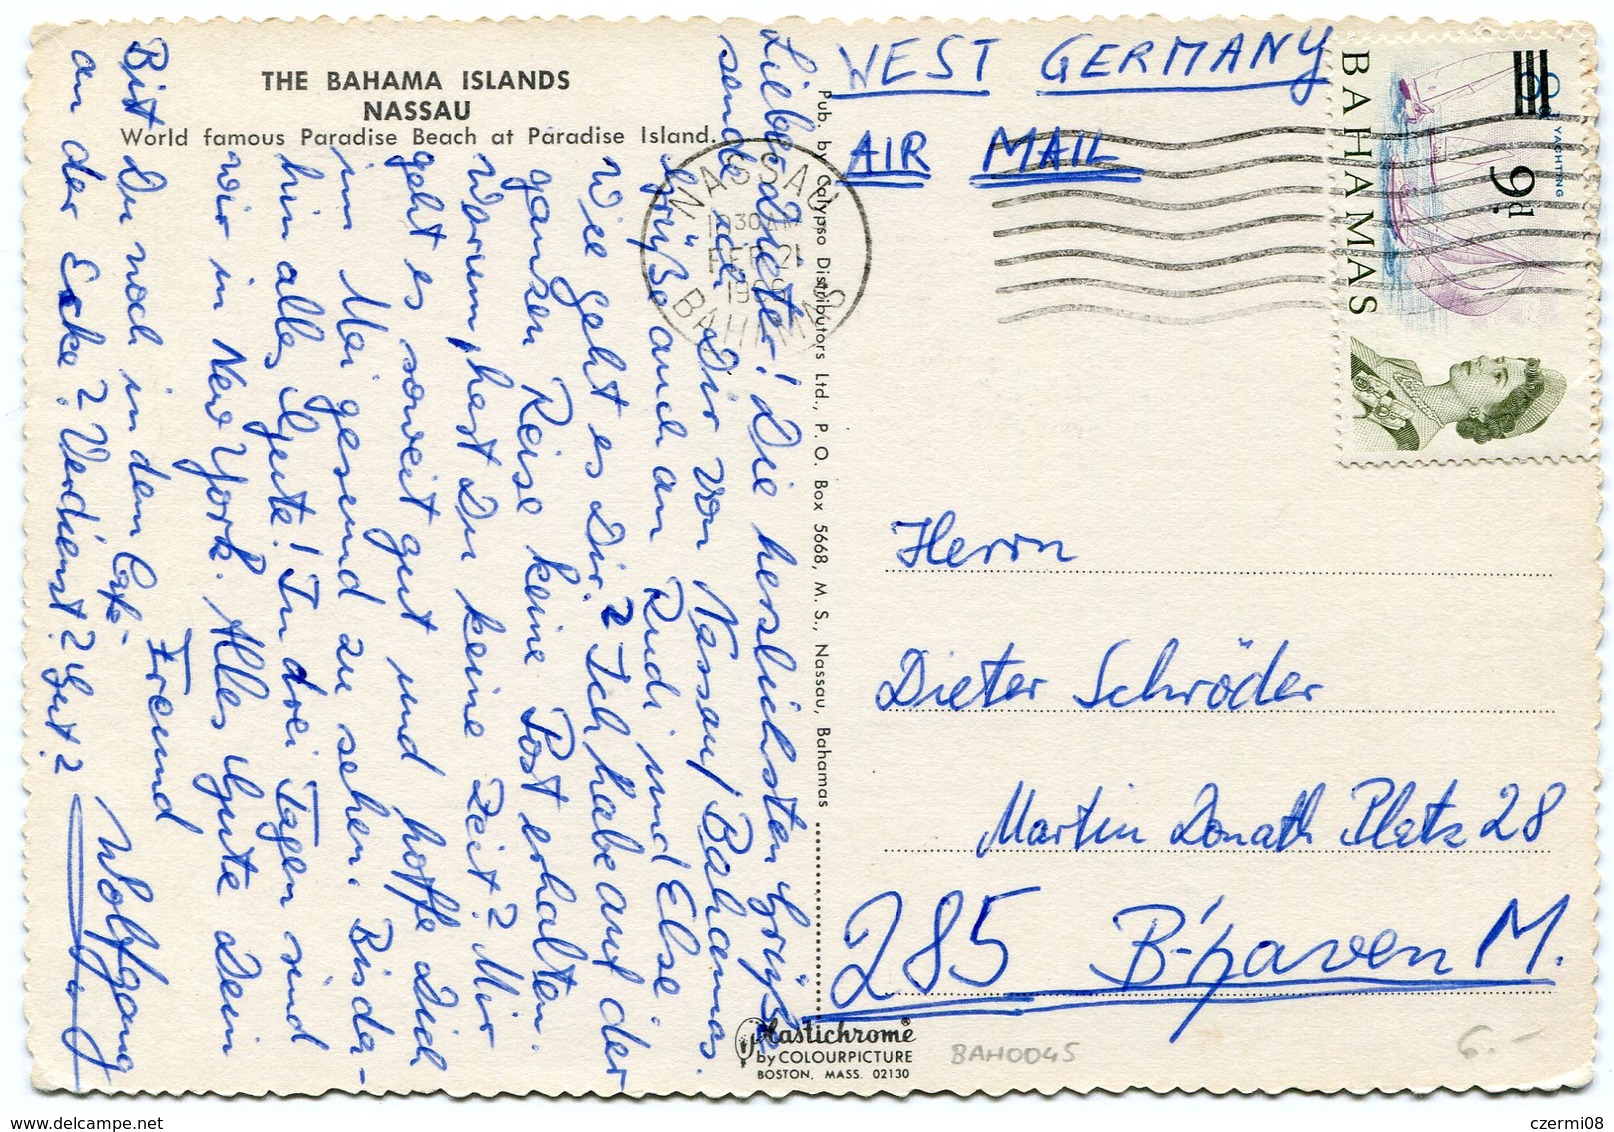 THE BAHAMA ISLANDS
NASSAU
World famous Paradise Beach at Paradise Island.
Lieber Dieter! Die herzlichsten Grüße
sende ich Dir von Nassau/Bahamas.
Grüße auch an Rudi und Else
Wie geht es Dir? Ich habe auf der
ganzen Reise keine Post erhalten.
Warum, hast Du keine Zeit? Mir
geht es soweit gut und hoffe Dich
im Mai gesund zu sehen. Bis da-
hin alles Gute! In drei Tagen sind
wir in New York. Alles Gute Dein
Freund
Wolfgang
Bist Du noch in dem Cafe
an der Ecke? Verdienst? Gut?
Pub. by Calypso Distributors Ltd., P. O. Box 5668, M. S., Nassau, Bahamas
WEST GERMANY
AIR MAIL
NASSAU
FEB 21
BAHAMAS
BAHAMAS
YACHTING
9d.
Herrn
Dieter Schröder
Martin Donath Platz 28
285 B'haven M.
Plastichrome®
by COLOURPICTURE
BOSTON, MASS. 02130
BAH0045
6.-
czermi08